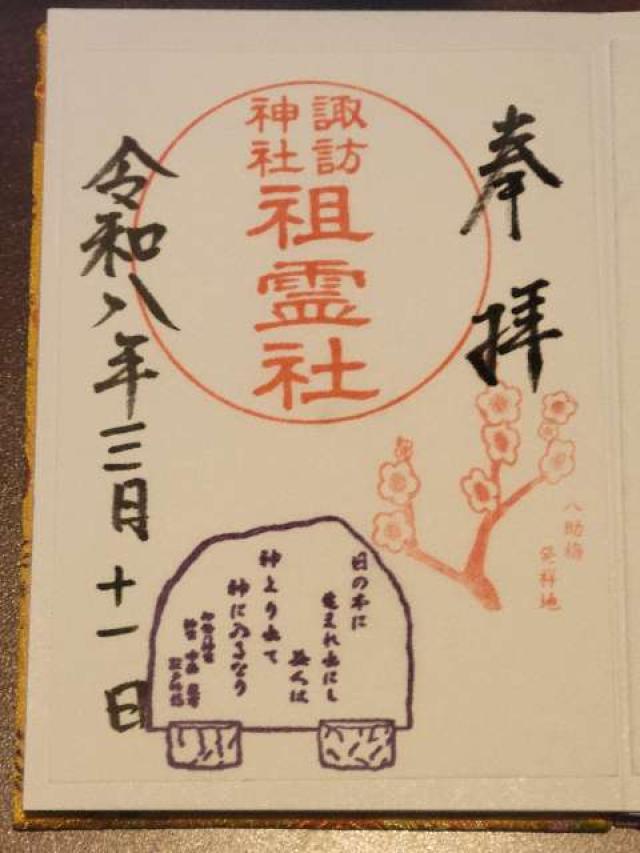 奉拝
諏訪
神社
祖霊社
令和八年三月十一日
八助梅
発祥地
日の本に
生まれ出にし
益人は
神より出て
神に入るなり